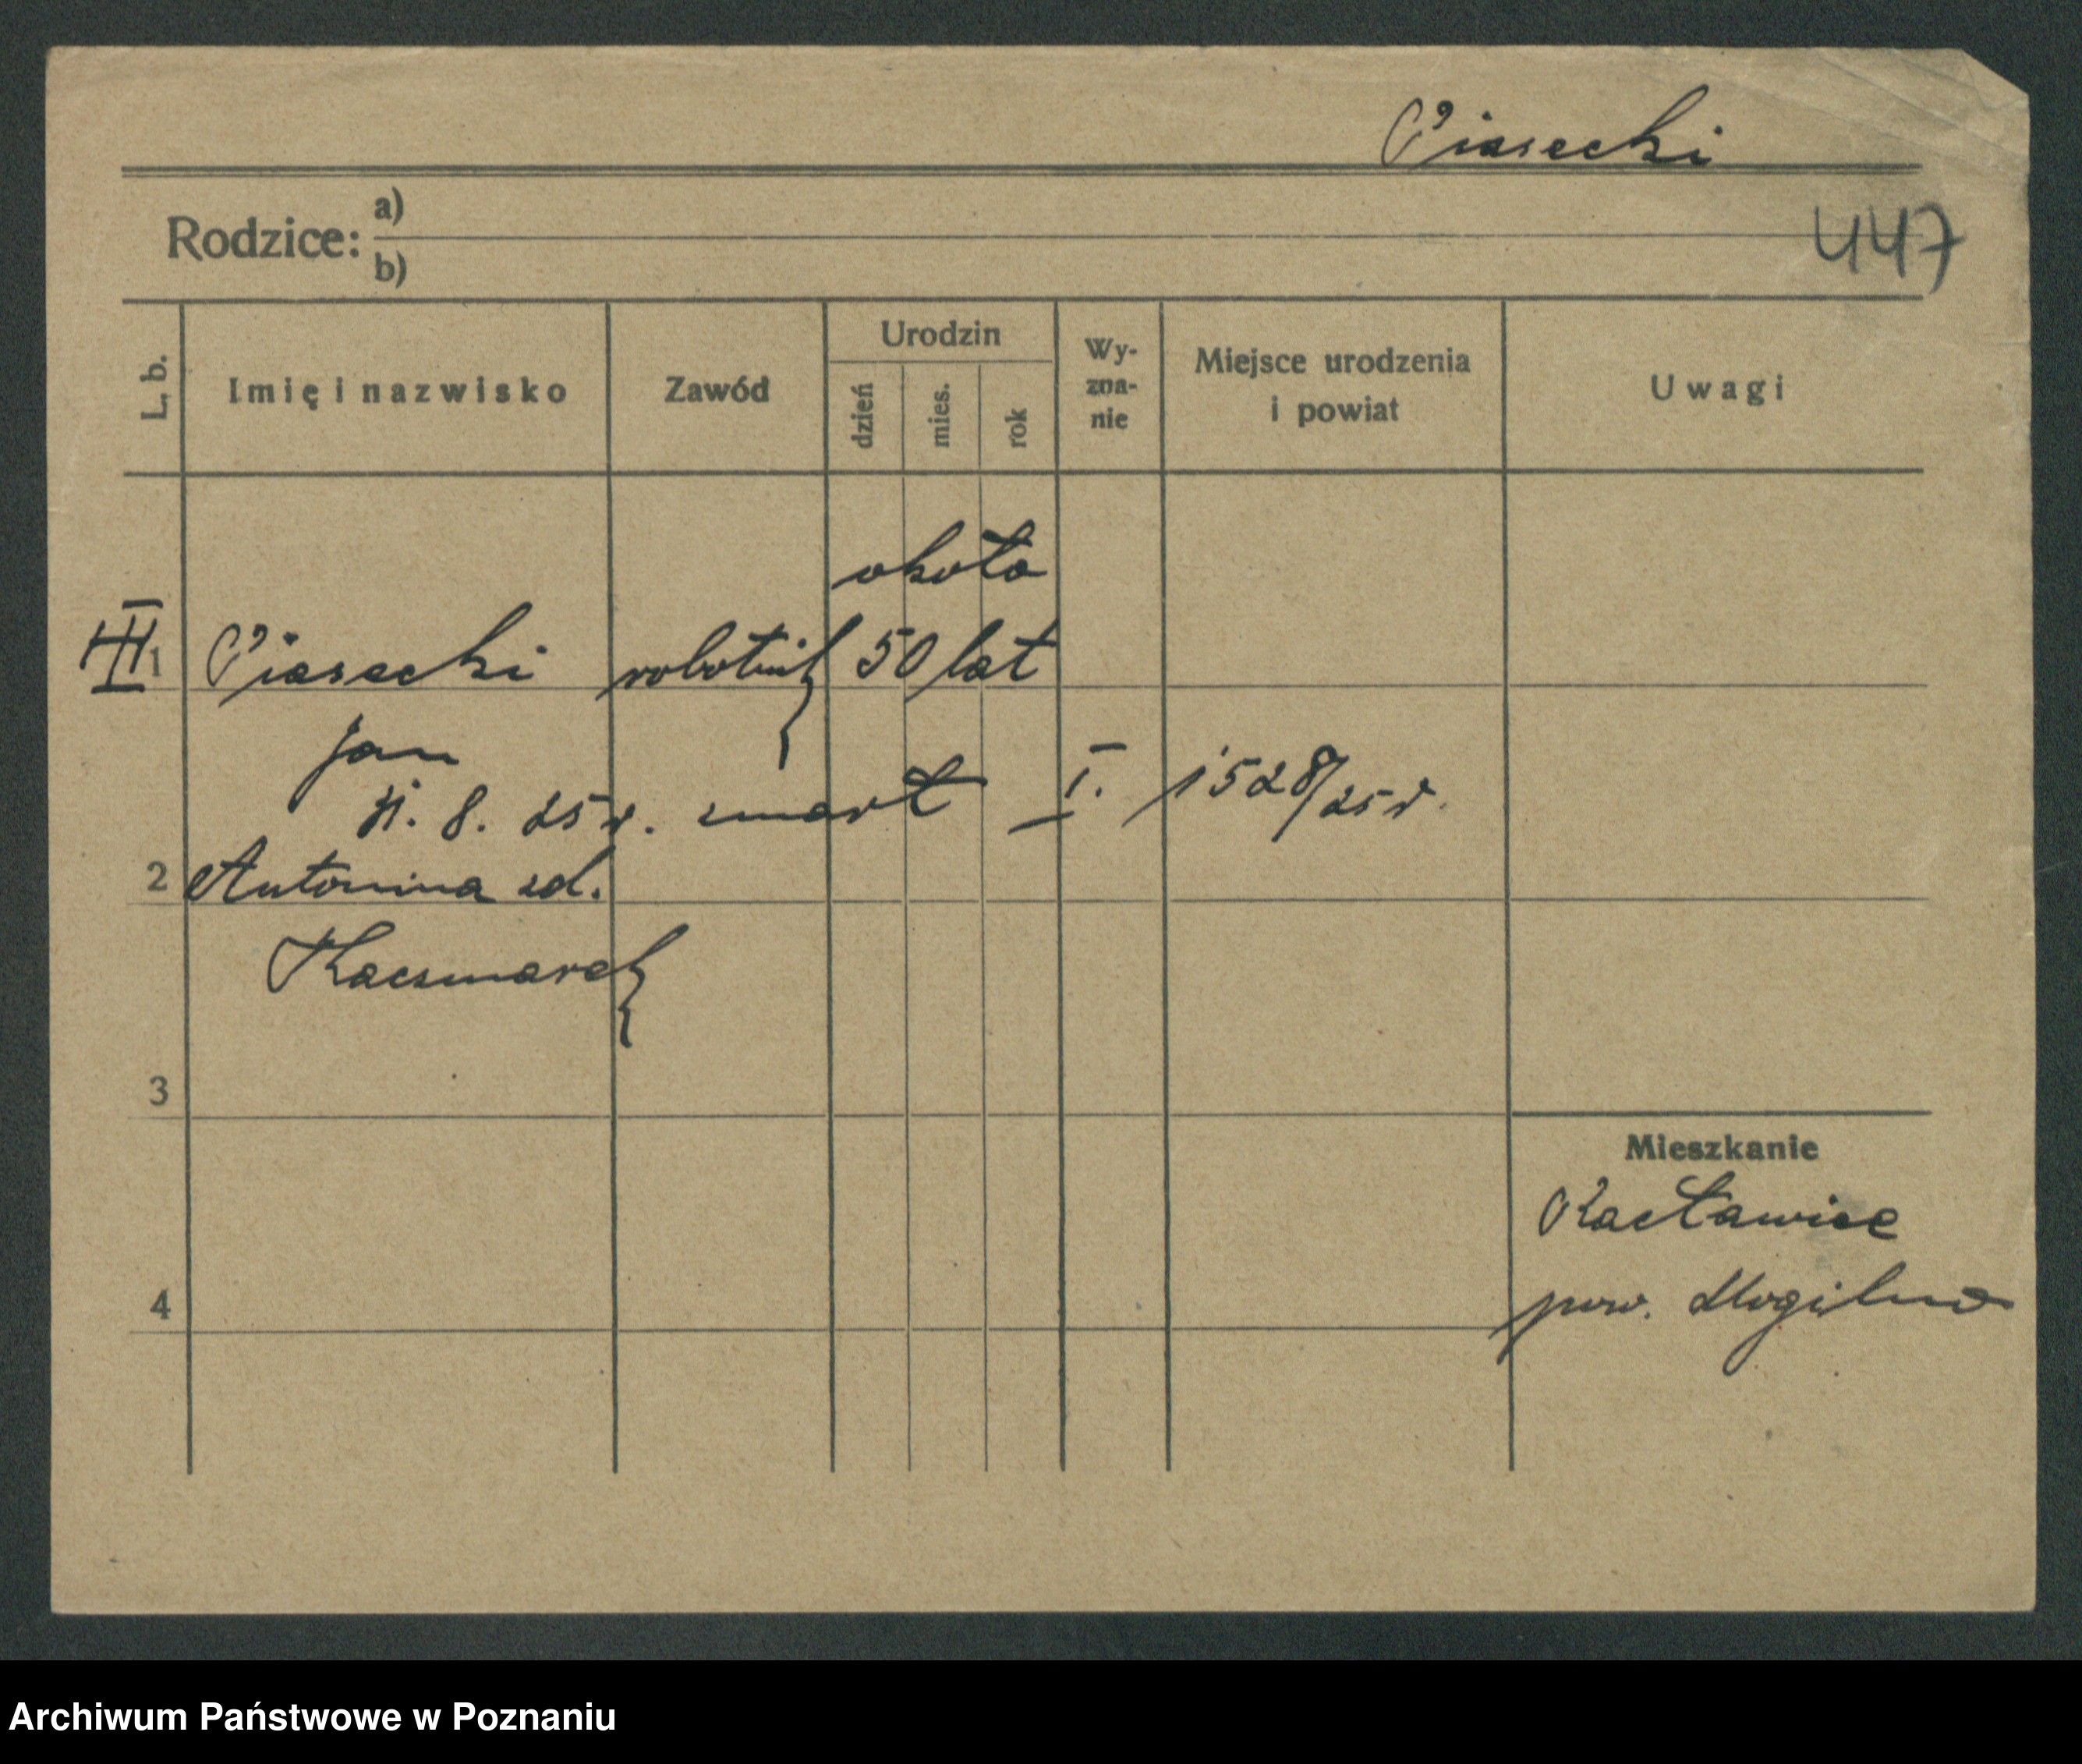 Piasecki
Rodzice: a)
b)
447
L. b. Imię i nazwisko Zawód Urodzin dzień mies. rok Wy-zna-nie Miejsce urodzenia i powiat Uwagi
około
1 Piasecki robotnik 50 lat
Jan
8. 25 r. zmarł I. 1528/25 r.
2 Antonina zd.
Kaczmarek
3
Mieszkanie
Racławice
4 pow. Mogilno
Archiwum Państwowe w Poznaniu